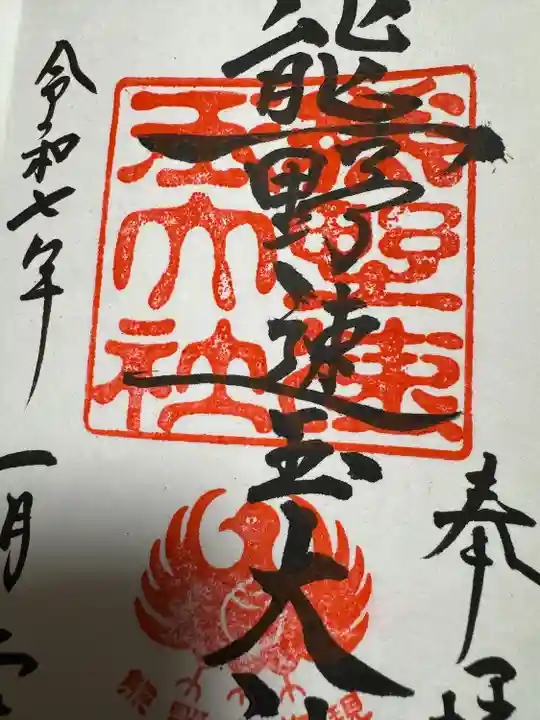 奉拝
熊野速玉大社
令和七年
一月
熊野速玉大社
熊野